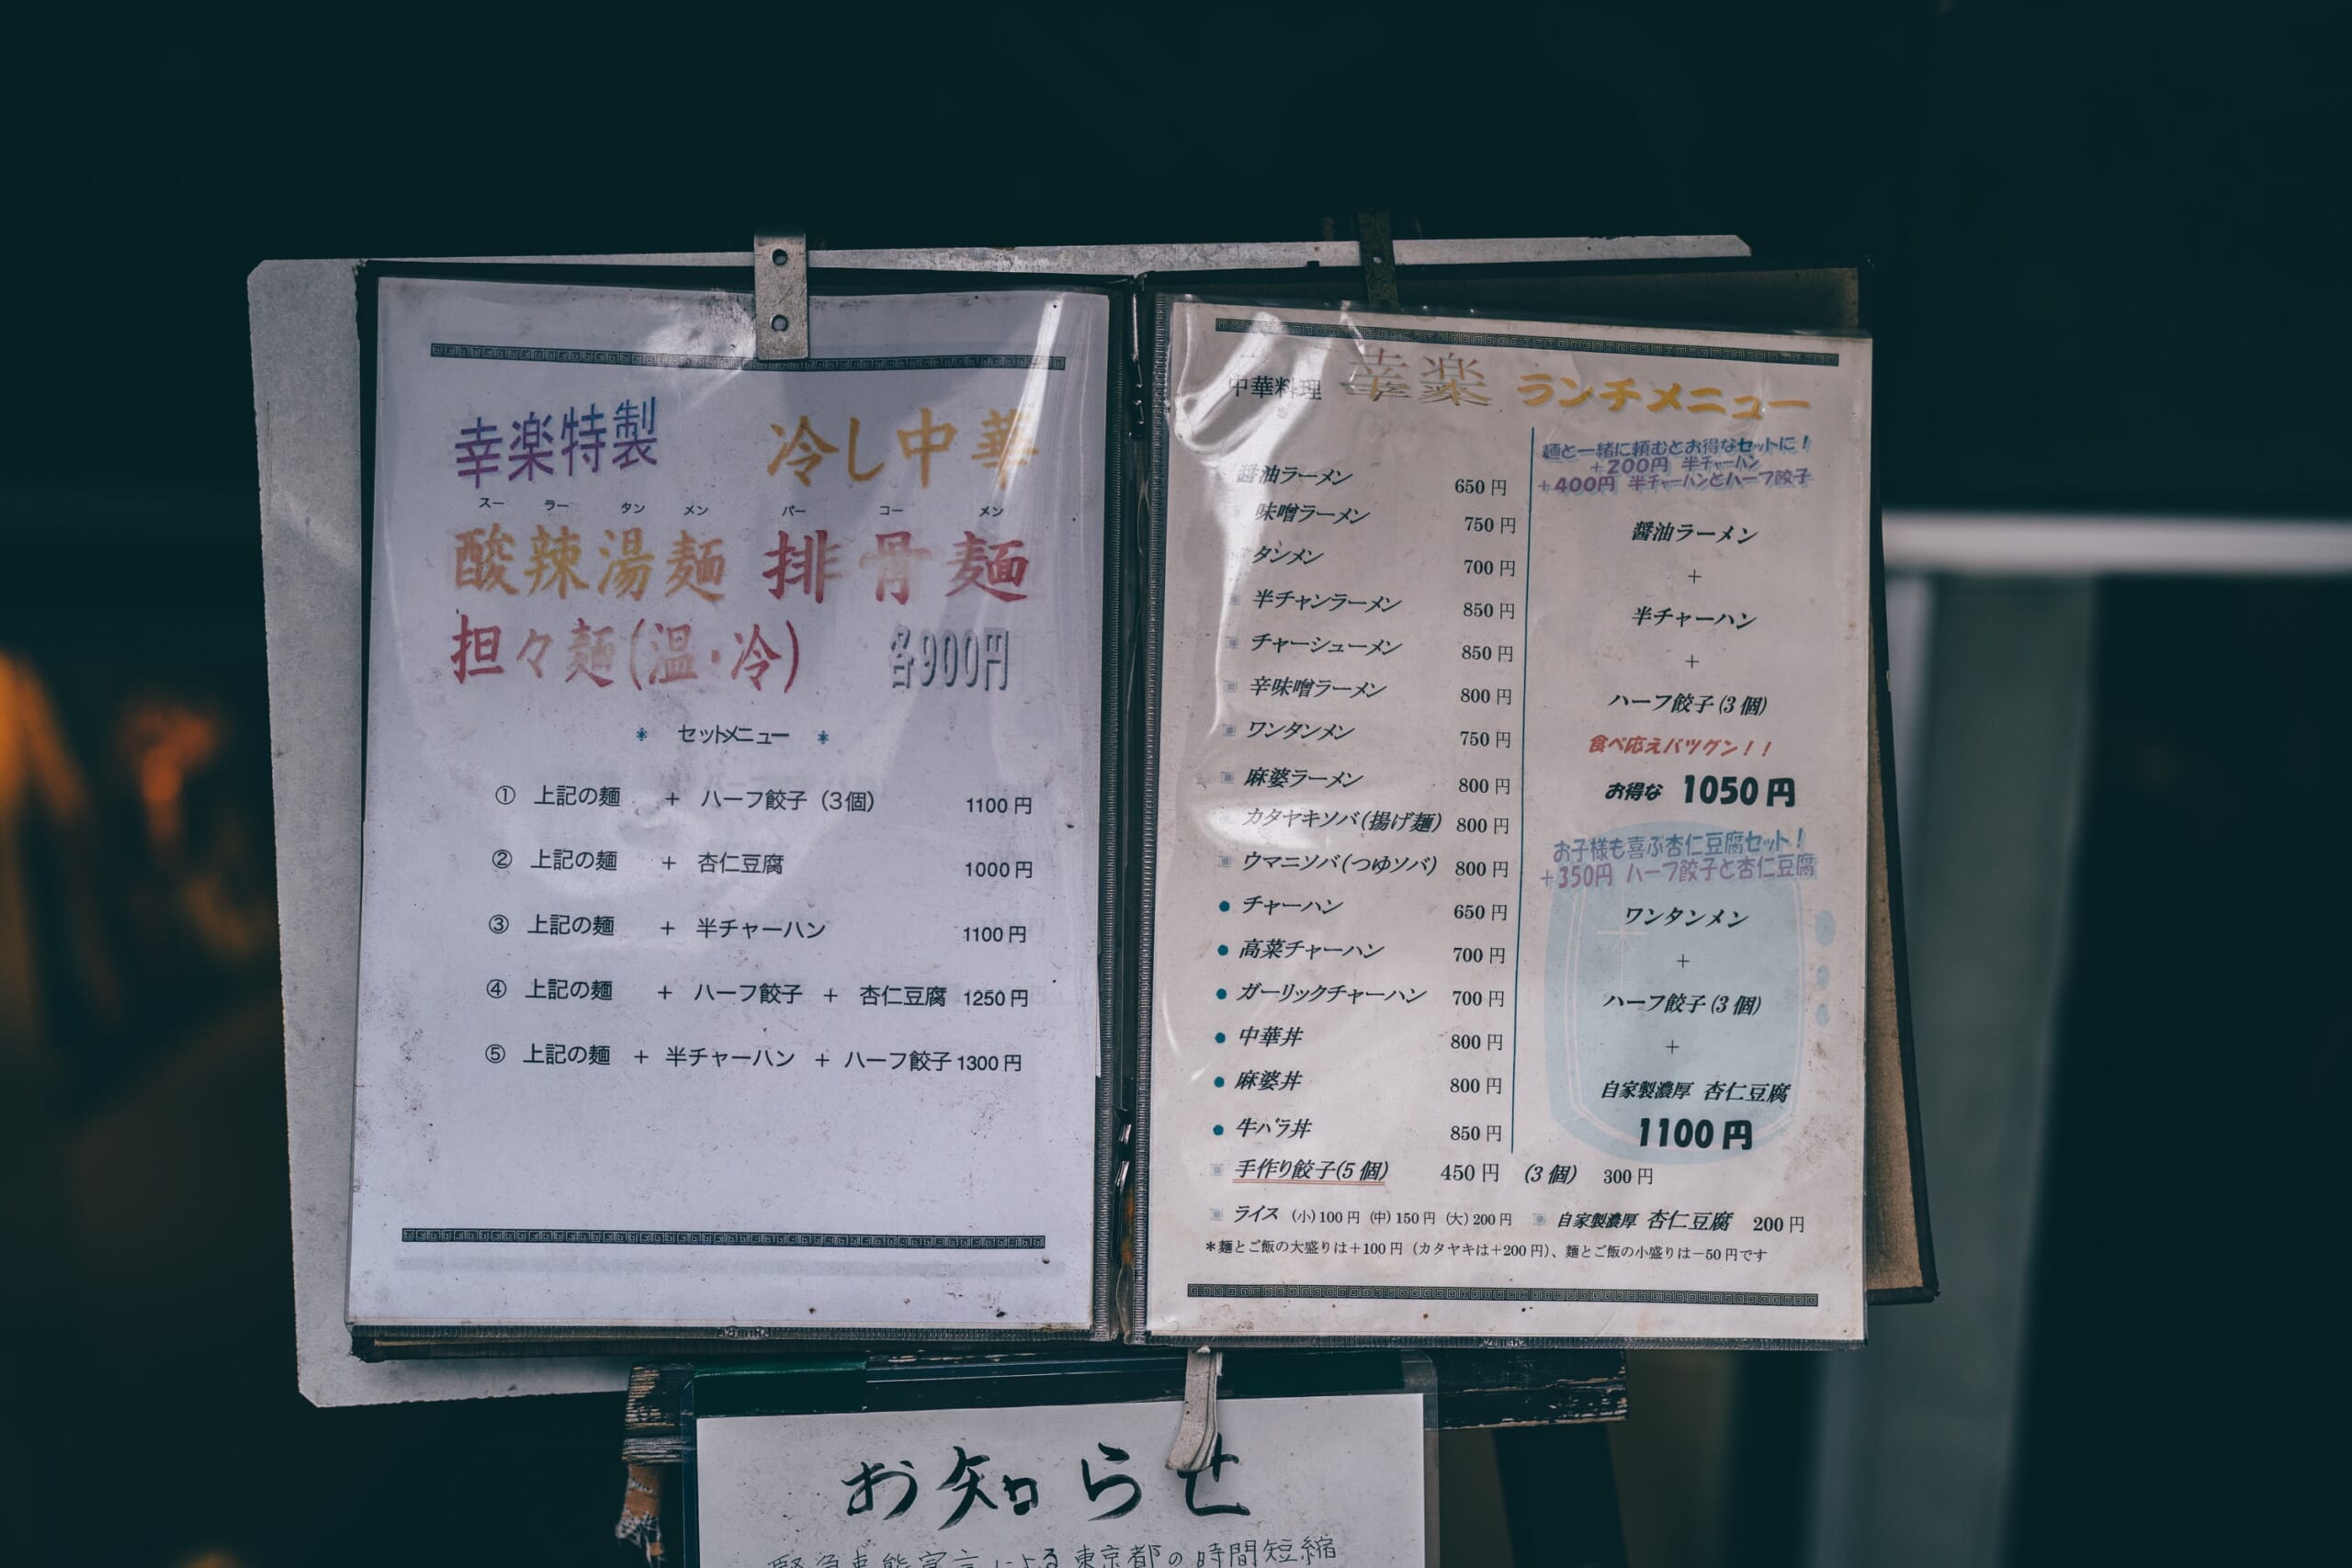 幸楽特製 冷し中華
スー ラー タン メン パー コー メン
酸辣湯麺 排骨麺
担々麺(温・冷) 各900円
セットメニュー
① 上記の麺 + ハーフ餃子(3個) 1100円
② 上記の麺 + 杏仁豆腐 1000円
③ 上記の麺 + 半チャーハン 1100円
④ 上記の麺 + ハーフ餃子 + 杏仁豆腐 1250円
⑤ 上記の麺 + 半チャーハン + ハーフ餃子 1300円
中華料理 幸楽 ランチメニュー
醤油ラーメン 650円
味噌ラーメン 750円
タンメン 700円
半チャンラーメン 850円
チャーシューメン 850円
辛味噌ラーメン 800円
ワンタンメン 750円
麻婆ラーメン 800円
カタヤキソバ(揚げ麺) 800円
ウマニソバ(つゆソバ) 800円
チャーハン 650円
高菜チャーハン 700円
ガーリックチャーハン 700円
中華丼 800円
麻婆丼 800円
牛バラ丼 850円
麺と一緒に頼むとお得なセットに!
+200円 半チャーハン
+400円 半チャーハンとハーフ餃子
醤油ラーメン
+
半チャーハン
+
ハーフ餃子(3個)
食べ応えバツグン!!
お得な 1050円
お子様も喜ぶ杏仁豆腐セット!
+350円 ハーフ餃子と杏仁豆腐
ワンタンメン
+
ハーフ餃子(3個)
+
自家製濃厚 杏仁豆腐
1100円
手作り餃子(5個) 450円 (3個) 300円
ライス (小)100円 (中)150円 (大)200円 自家製濃厚 杏仁豆腐 200円
*麺とご飯の大盛りは+100円(カタヤキは+200円)、麺とご飯の小盛りは-50円です
お知らせ
緊急事態宣言による東京都の時間短縮